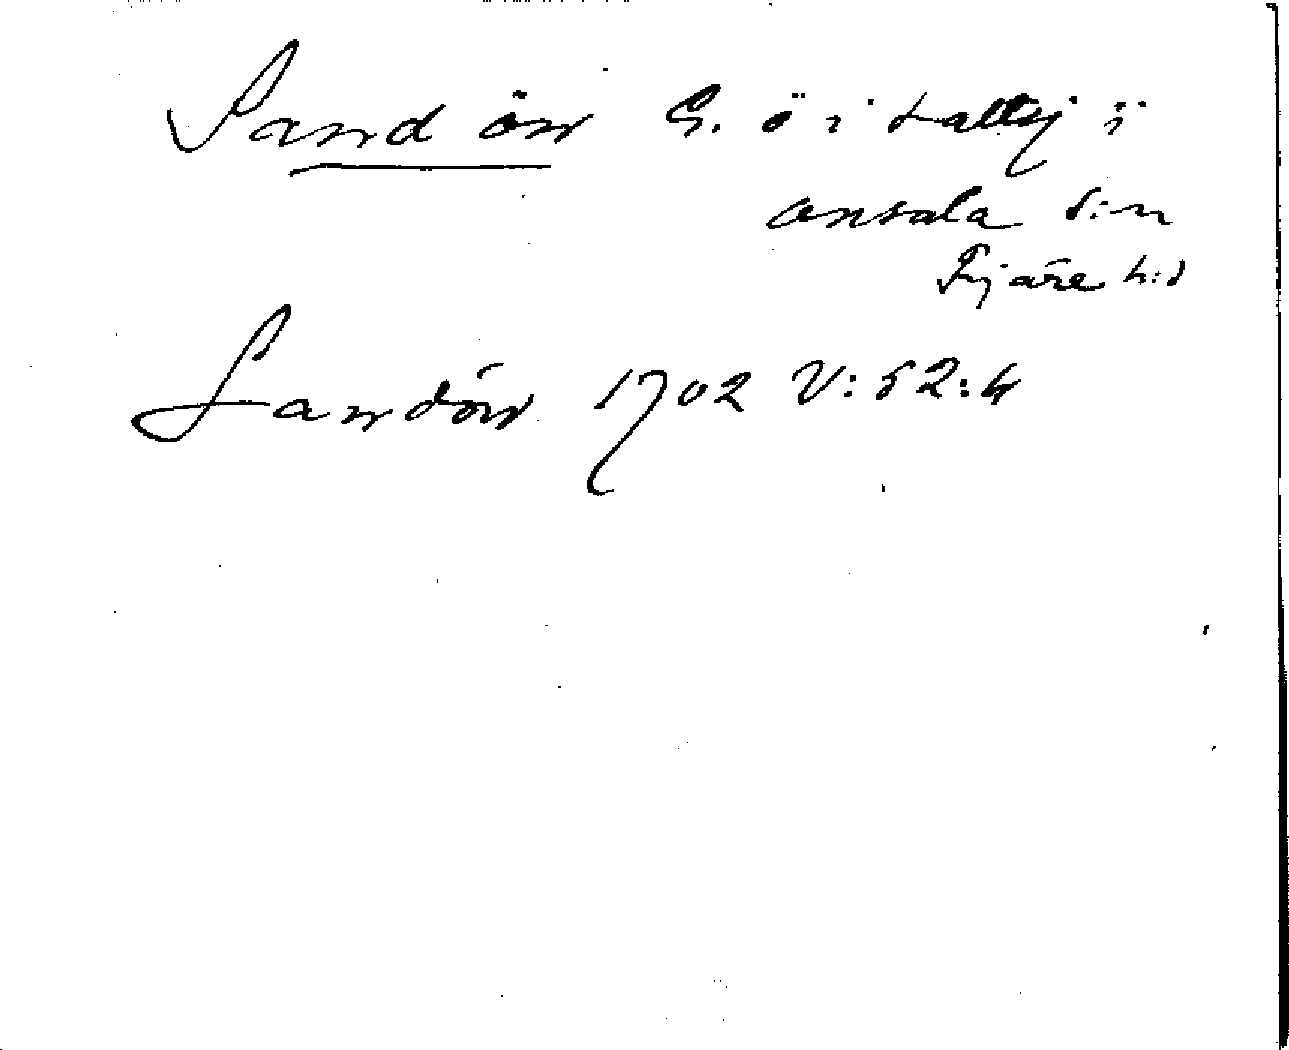 Sandön G. ö i Kattej i
Onsala s:n
Fjäre h:d
Sandön 1702 V:52:4